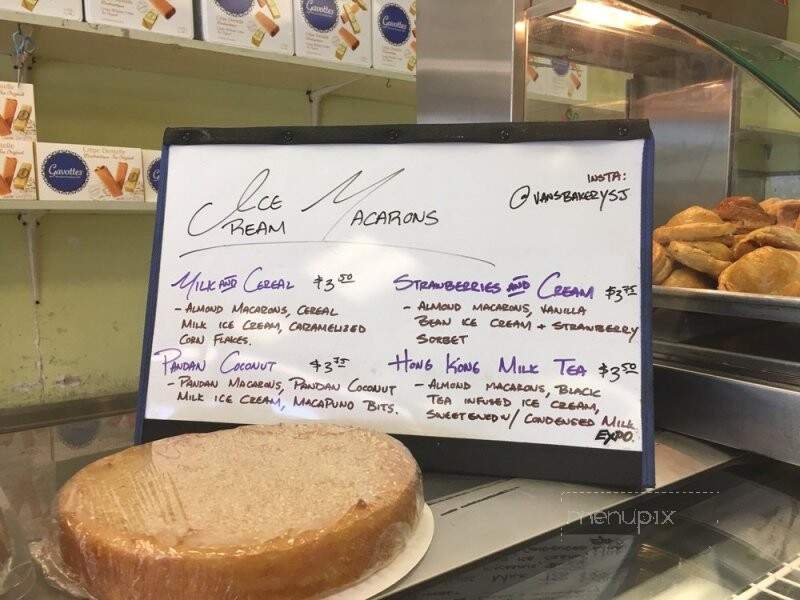 Gavottes
Gavottes
Gavottes
Gavottes
ICE CREAM MACARONS
INSTA:
@VANSBAKERYSJ
MILK AND CEREAL $3.50
- ALMOND MACARONS, CEREAL
MILK ICE CREAM, CARAMELIZED
CORN FLAKES.
STRAWBERRIES AND CREAM $3.75
- ALMOND MACARONS, VANILLA
BEAN ICE CREAM + STRAWBERRY
SORBET
PANDAN COCONUT $3.75
- PANDAN MACARONS, PANDAN COCONUT
MILK ICE CREAM, MACAPUNO BITS.
HONG KONG MILK TEA $3.50
- ALMOND MACARONS, BLACK
TEA INFUSED ICE CREAM,
SWEETENED W/ CONDENSED MILK
EXPO
menupix